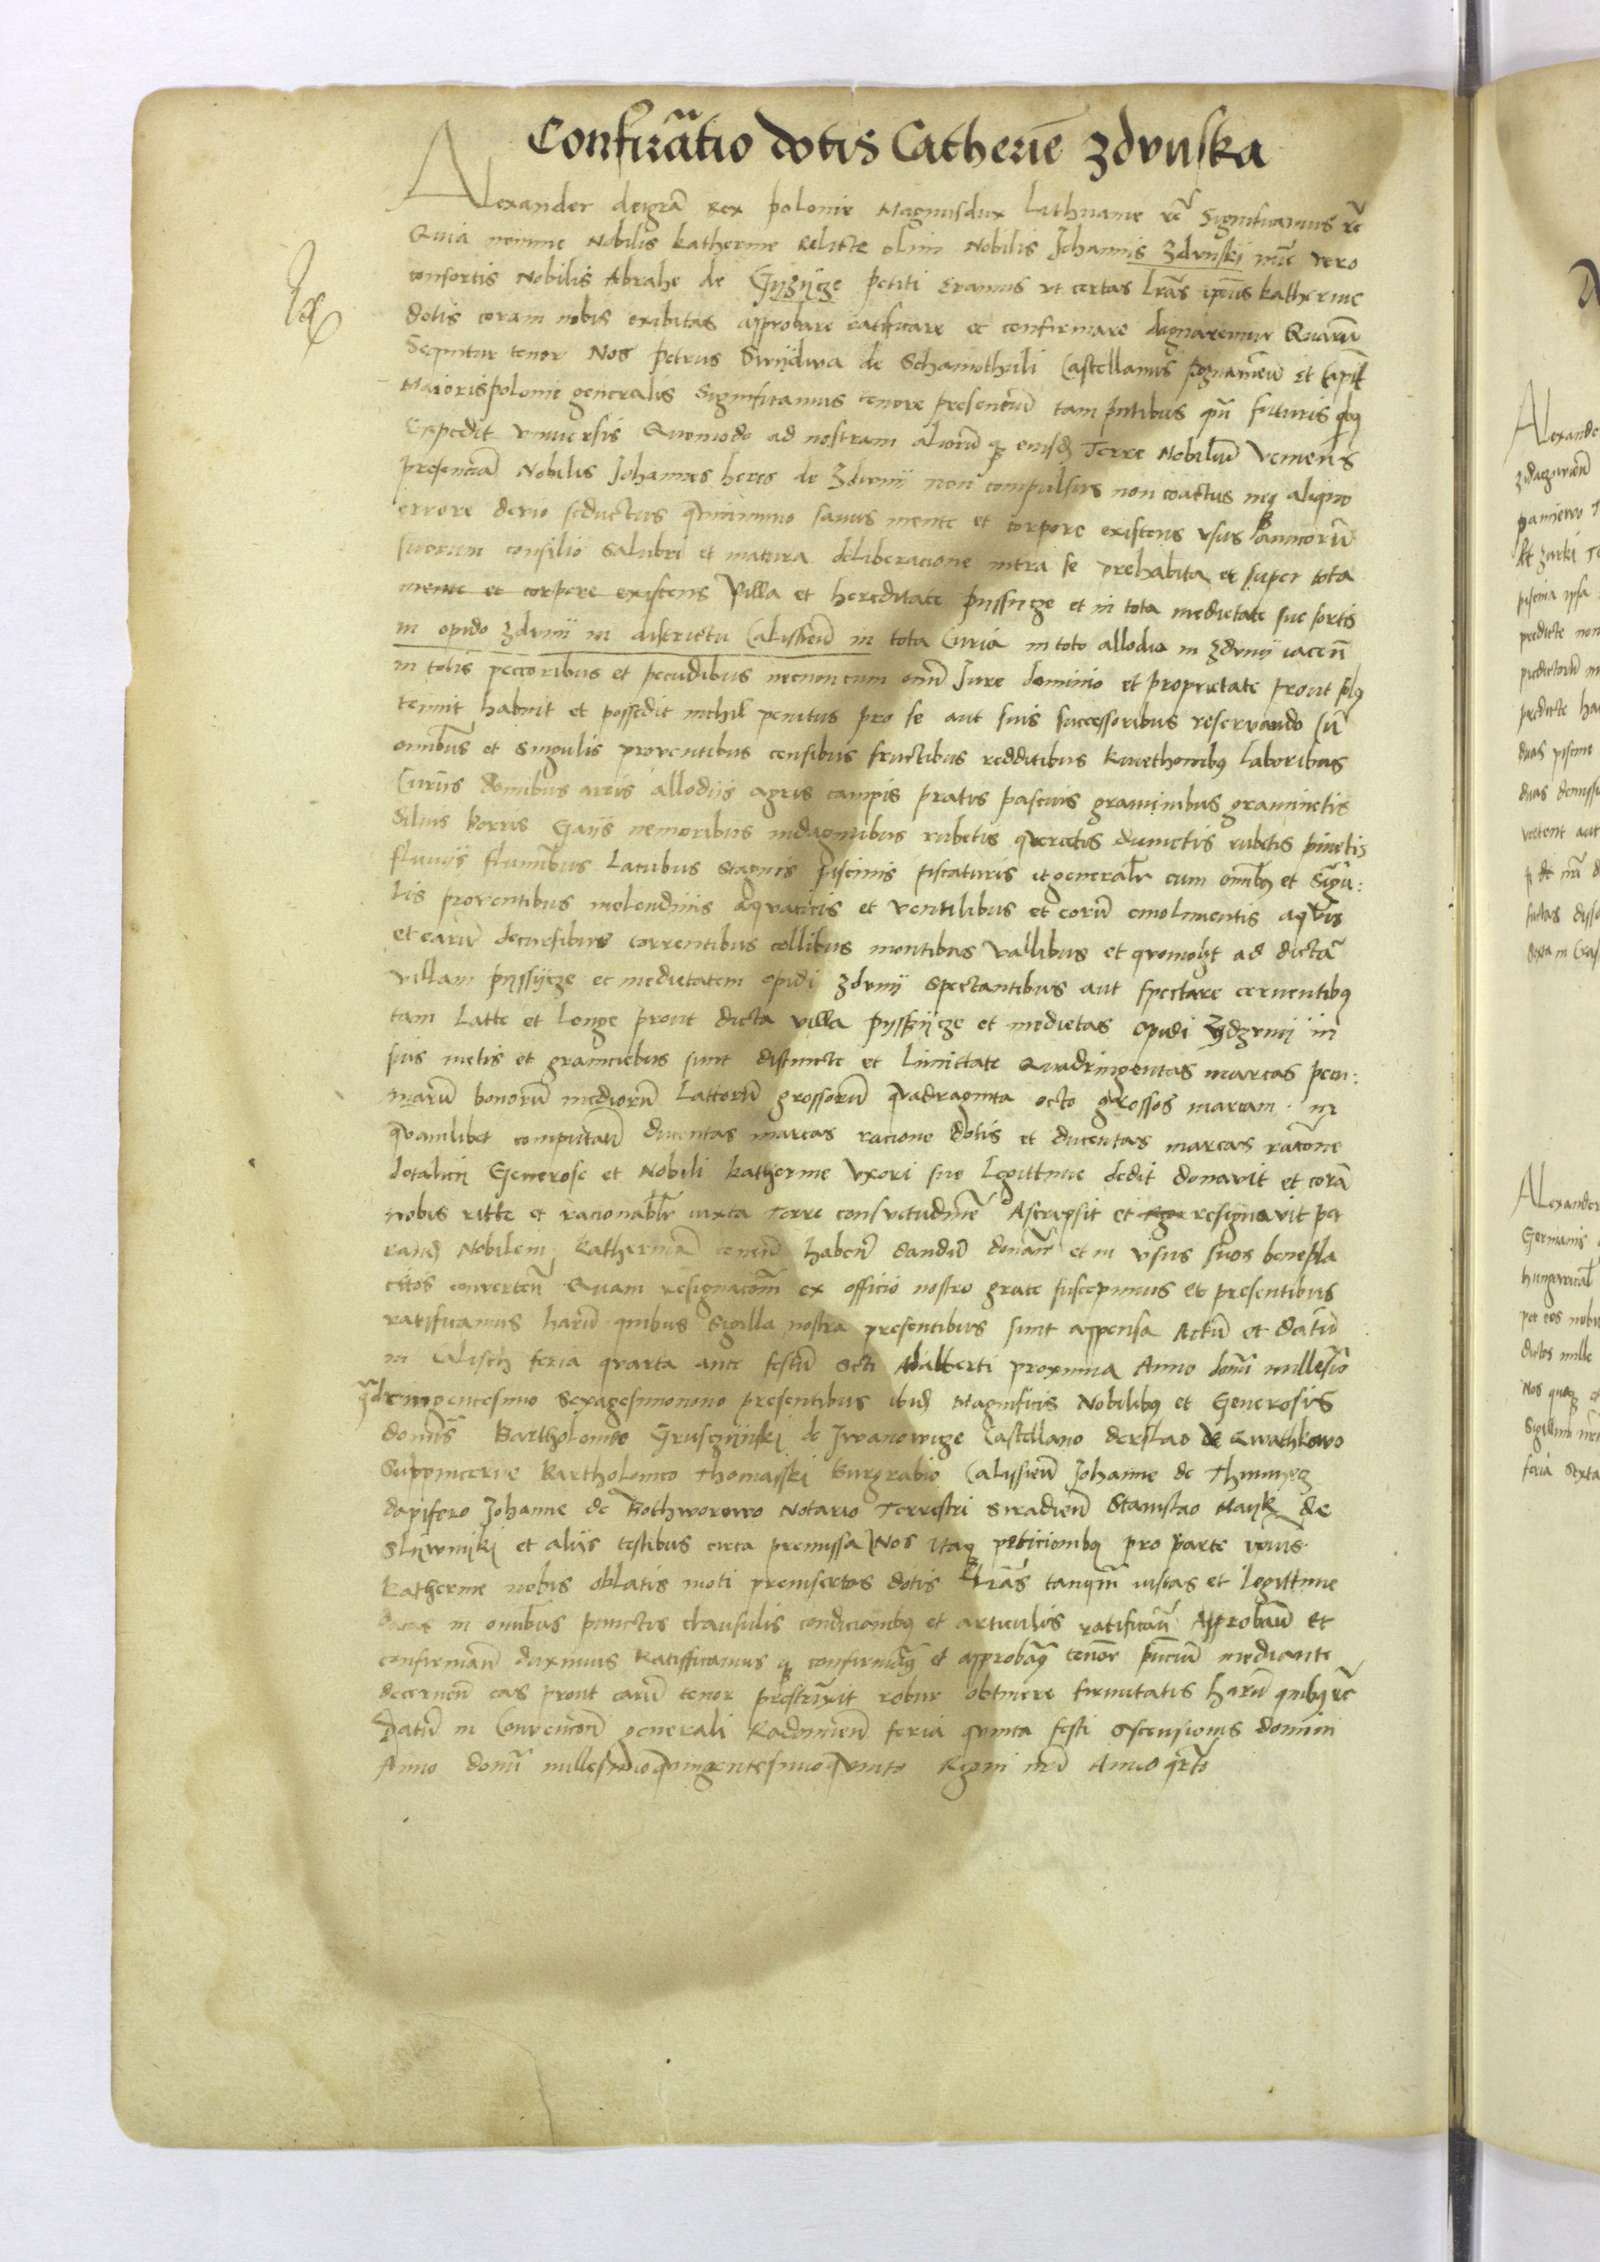 Confirmãtio dotis Catherinē Zdunska
Alexander deigrã Rex polonie Magnusdux Lithuanie rc̃ Significamus rc̃
Quia nomine Nobilis katherine relicte olim Nobilis Johannis Zdunski nũc vero
consortis Nobilis Abrahe de Gyzycze petiti eramus vt certas lrãs ip̃ius katherine
dotis coram nobis exibitas approbare ratificare et confirmare dignaremur Quarũ
Sequitur tenor Nos petrus Swydwa de Schamothuli Castellanus poznanieñ et Capit̃
Maiorispolonie generalis Significamus tenore presenciũ tam pñtibus qũ futuris qbꝫ
Expedit vniuersis Quomodo ad nostram aliorũ qꝫ eiusdꝫ Terre Nobiliũ veniens
presenciã Nobilis Johannes heres de Zdunij non compulsus non coactus neqꝫ aliquo
errore devio seductus qvinimmo sanus mente et corpore existens vsus amicorũ
suorum consilio salubri et matura deliberacione intra se prehabita et super tota
mente et corpore existens Villa et hereditate pyssycze et in tota medietate sue sortis
in opido Zdunij in districtu Calissieñ in tota Curia in toto allodio in Zdunij iaceñ
in totis peccoribus et pecudibus necnon cum omni Jure dominio et proprietate prout solꝰ
tenuit habuit et possedit nichil penitus pro se aut suis successoribus reservando Cũ
omnibus et singulis proventibus censibus fructibus redditibus kmethonibꝫ laboribus
Curiis domibus areis allodiis agris campis pratis pascuis graminibus graminetis
siluis borris Gaiis nemoribus indaginibus rubetis qvercetis dumetis rubetis pinetis
fluviis fluminibus lacubus stagnis piscinis piscaturis et generalr̃ cum omnibꝫ et singu:
lis proventibus molendinis aqvaticis et ventilibus et eorũ emolimentis aqvis
et earũ decursibus torrentibus collibus montibus vallibus et qvomolꝫt ad dictã
villam pyssycze et medietatem opidi Zdunij Spectantibus aut spectare cernentibꝫ
tam Latte et Longe prout dicta villa pysszycze et medietas opidi Zdzunij in
suis metis et graniciebus sunt distincte et limitate Quadringentas marcas pecu:
niarũ bonorũ mediorũ lattorũ grossorũ qvadraginta octo grossos marcam in
qvamlibet computañ ducentas marcas racione dotis et ducentas marcas racõne
dotalicii Generose et Nobili katherine Vxori sue Legittime dedit donavit et corã
nobis ritte et racionablr̃ iuxta terre consvetudinẽ Ascripsit et resignavit per
eandꝫ Nobilem katherinã teneñ habeñ dandũ donañ et in vsus suos benepla
citos converteñ Quam resignacõm ex officio nostro grate suscepimus et presentibus
ratificamus harũ quibus Sigilla nostra presentibus sunt appensa Actũ et datũ
in Calisch feria qvarta ante festũ scti Adalberti proxima Anno domĩ millesĩo
qͣdringentesimo sexagesimonono presentibus ibidꝫ Magnificis Nobilibꝫ et Generosis
domĩs Bartholomeo Gruszczijnski de Jwanowicze Castellano derslao de Qwathkowo
Suppincerne Bartholomeo Thomisski Burgrabio Calissieñ Johanne de Thminyecz
dapifero Johanne de Bothworowo Notario Terrestri Siradieñ Stanislao Mayk de
Slywnijki et aliis testibus circa premissa Nos itaqꝫ peticionibꝫ pro parte ip̃ius
katherine nobis oblatis moti preinsertas dotis lrãs tanqm̃ iustas et legittime
datas in omnibus punctis clausulis condicionibꝫ et articulis ratificañ Approbañ et
confirmañ duximus Ratifficamus qꝫ confirmamꝰ et approbamꝰ tenore pñciũ mediante
decerneñ eas prout earũ tenor prestrinxit robur obtinere firmitatis harũ quibꝫ rc̃
Datũ in Convencõne generali Radomieñ feria qvinta festi Ascensionis domini
Anno domĩ millesimoqvingentesimoqvinto Regni nrĩ Anno qrto